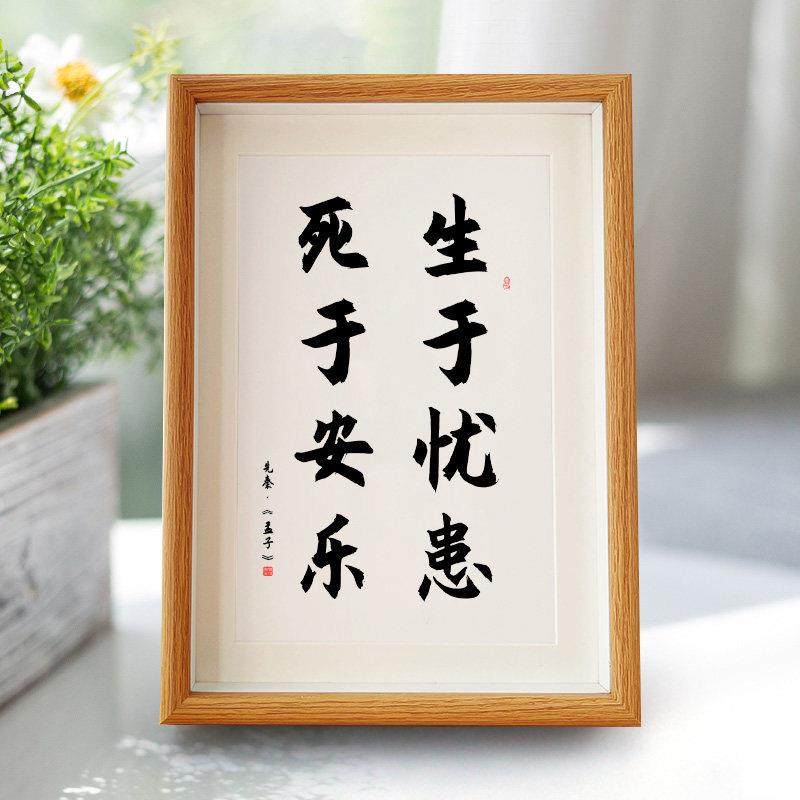 生于忧患
死于安乐
先秦·《孟子》